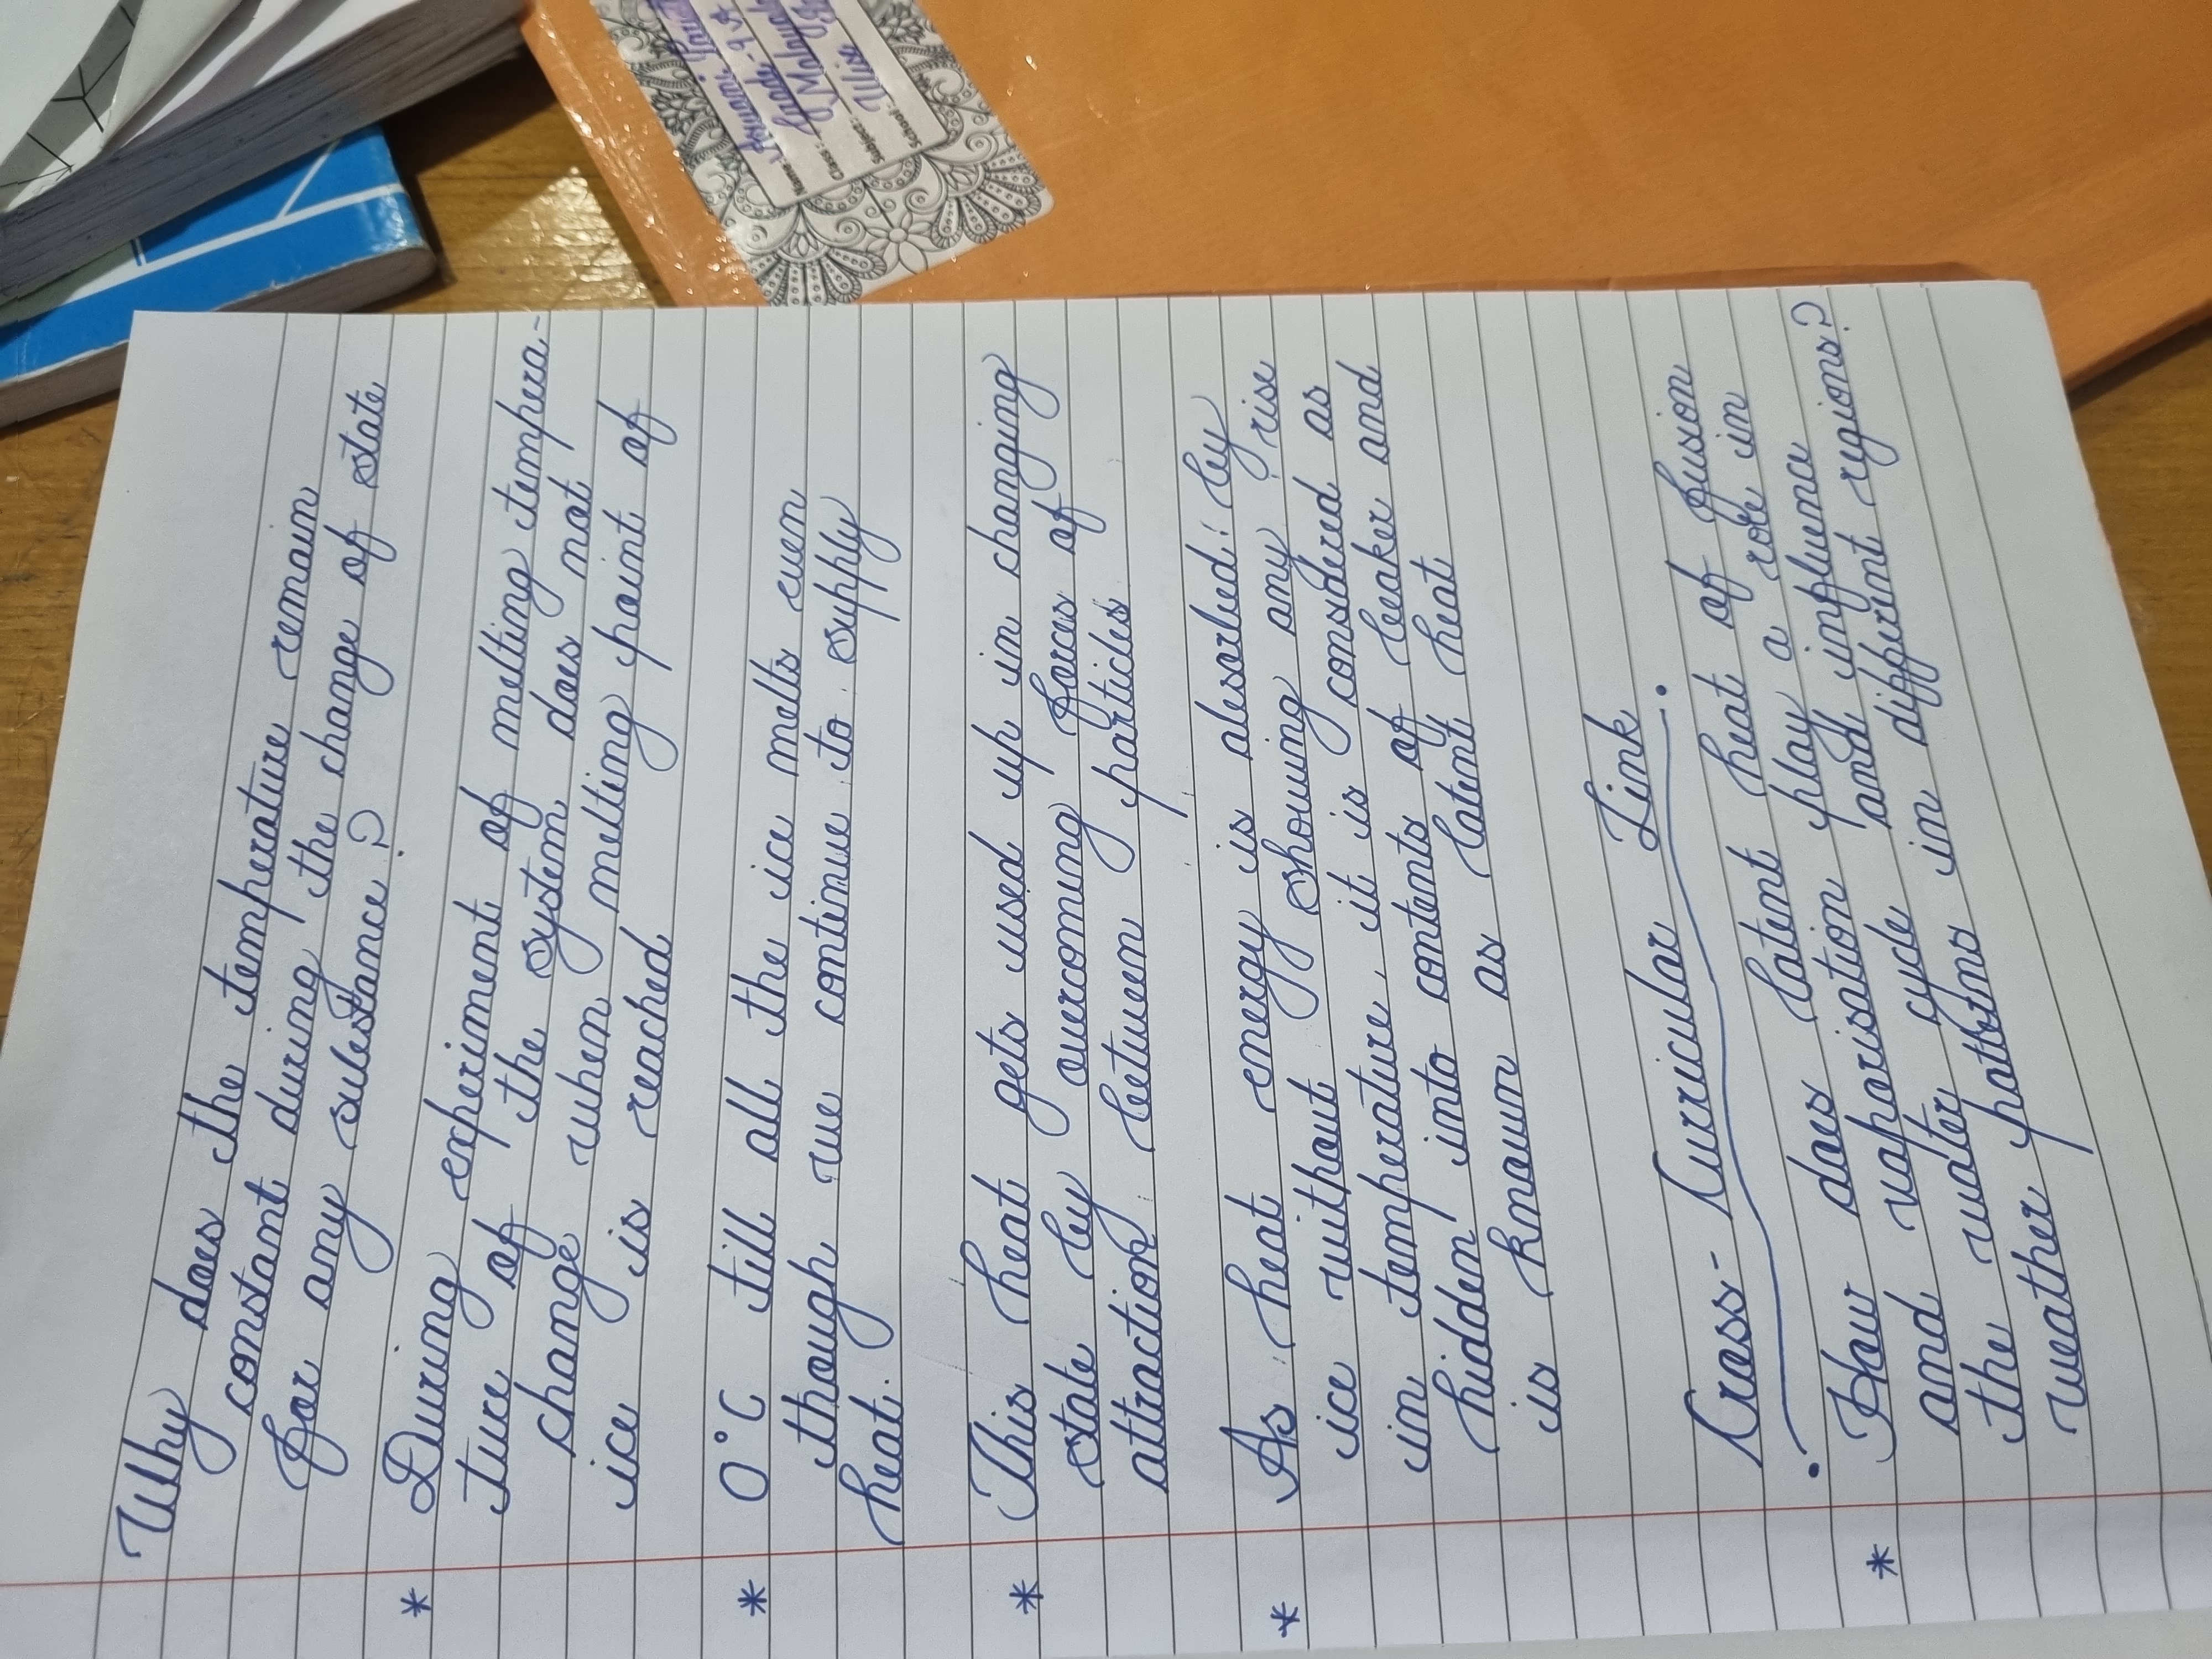 Why does the temperature remain
constant during the change of state
for any substance?
* During experiment of melting tempera-
ture of the system does not
change when melting point of
ice is reached
* 0°C till all the ice melts even
though we continue to supply
heat.
* This heat gets used up in changing
state by overcoming forces of
attraction between particles
* As heat energy is absorbed by
ice without showing any rise
in temperature, it is considered as
hidden into contents of beaker and
is known as latent heat
Cross-Curricular Link
* How does latent heat of fusion
and vaporisation play a role in
the water cycle and influence
weather patterns in different regions?
Name:
Class:
Subject: Malayalam
School: